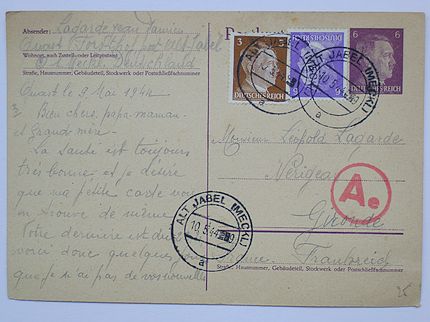 Absender: Lagarde Jean Damien
Quast Forsthof post Alt-Jabel
Wohnort, auch Zustell- oder Leitpostamt
Deutschland
Straße, Hausnummer, Gebäudeteil, Stockwerk oder Postschließfachnummer
Postkarte
3
DEUTSCHES REICH
DEUTSCHES REICH
6
6
DEUTSCHES REICH
ALT JABEL (MECKL)
a
ALT JABEL (MECKL)
10.5.44
a
Quast le 9 Mai 1944
Bien chers papa-maman
et Grand'mère
La santé est toujours
très bonne, et je désire
que ma petite carte vous
en trouve de même
Votre dernière est du
voici donc quelques jours
que je n'ai pas de vos nouvelles
Monsieur Léopold Lagarde
Gironde
France Frankreich
Straße, Hausnummer, Gebäudeteil, Stockwerk oder Postschließfachnummer
A.
ALT JABEL (MECKL)
10.5.44
a